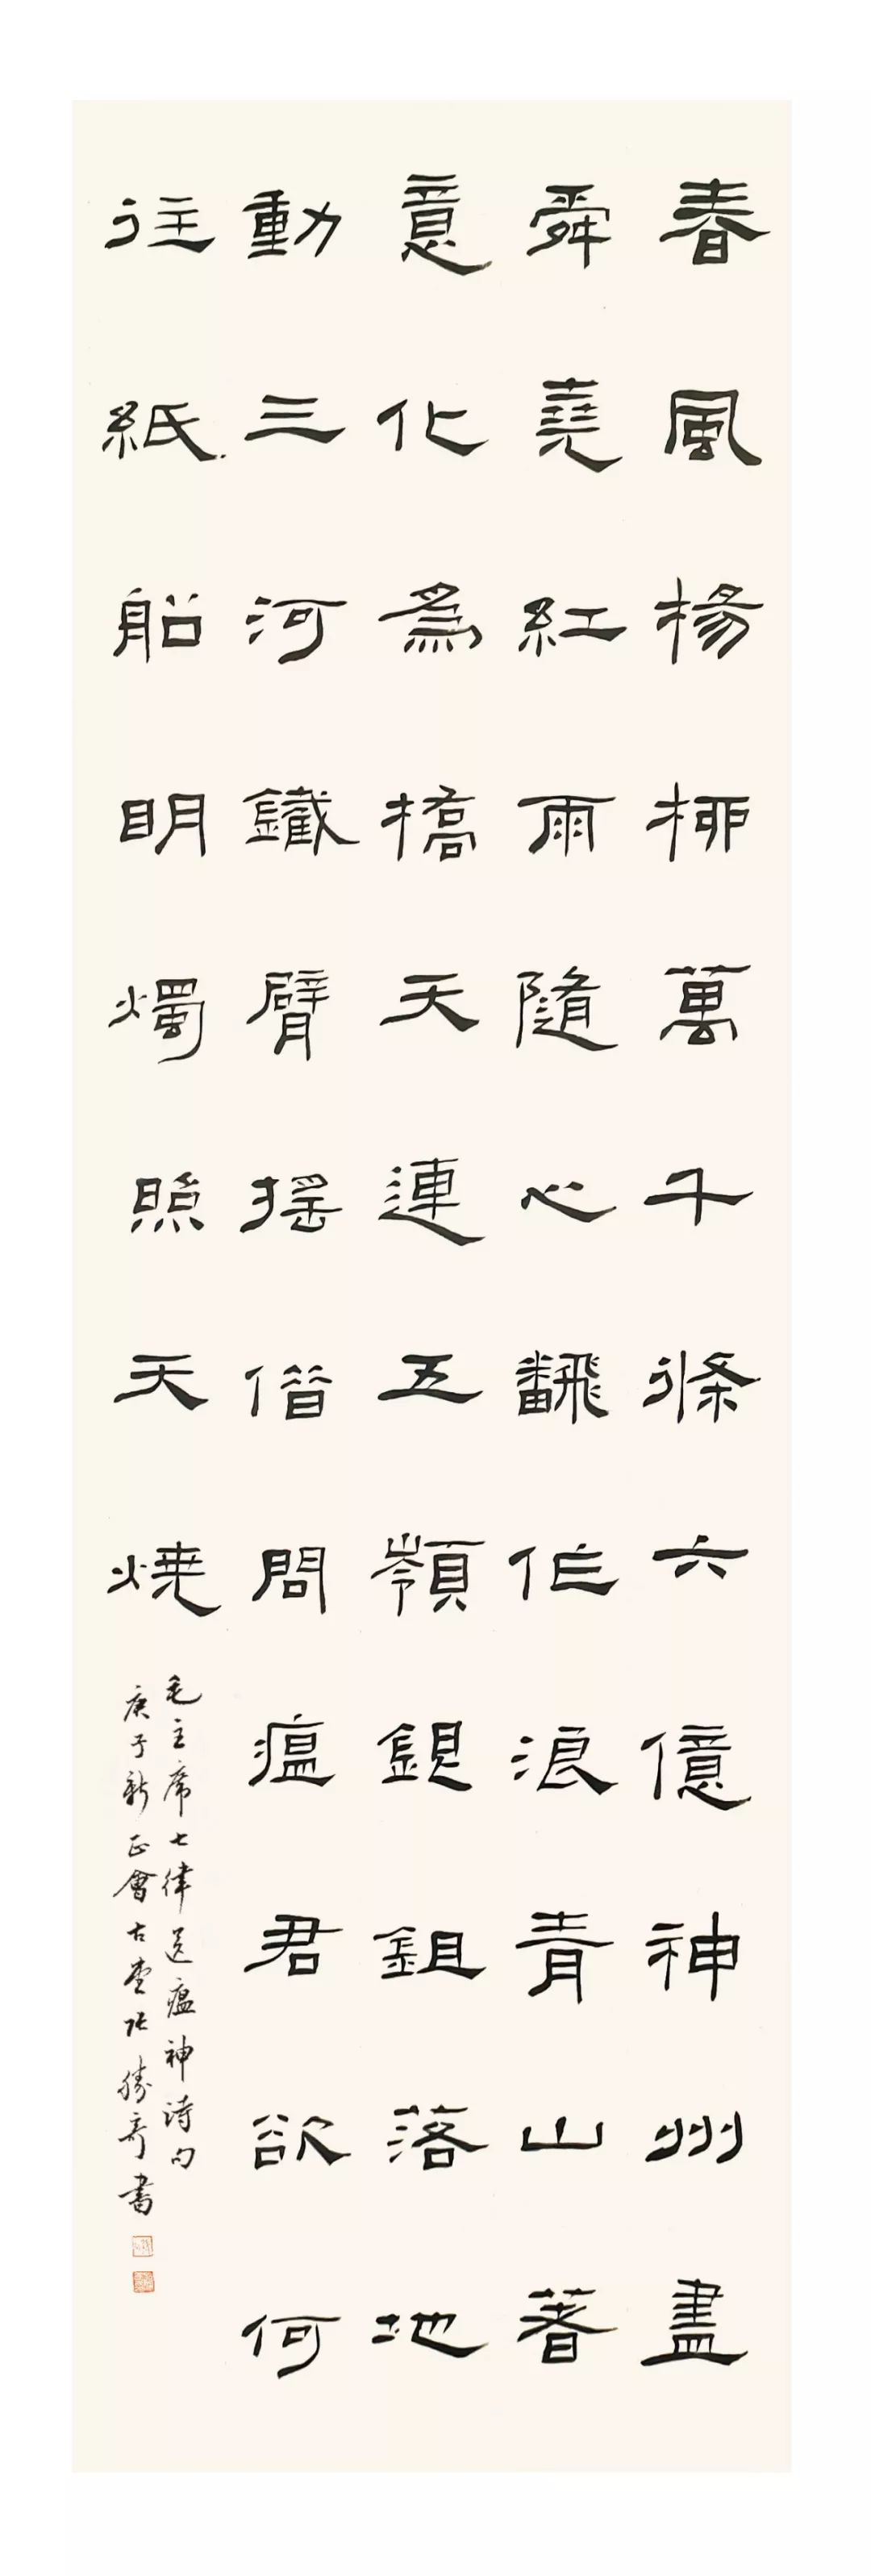 春風楊柳萬千條六億神州盡
舜堯紅雨隨心飜作浪青山著
意化為橋天連五嶺銀鉏落地
動三河鐵臂搖借問瘟君欲何
往紙船明燭照天燒
毛主席七律送瘟神诗句
庚子新正會古堂張勝奇書